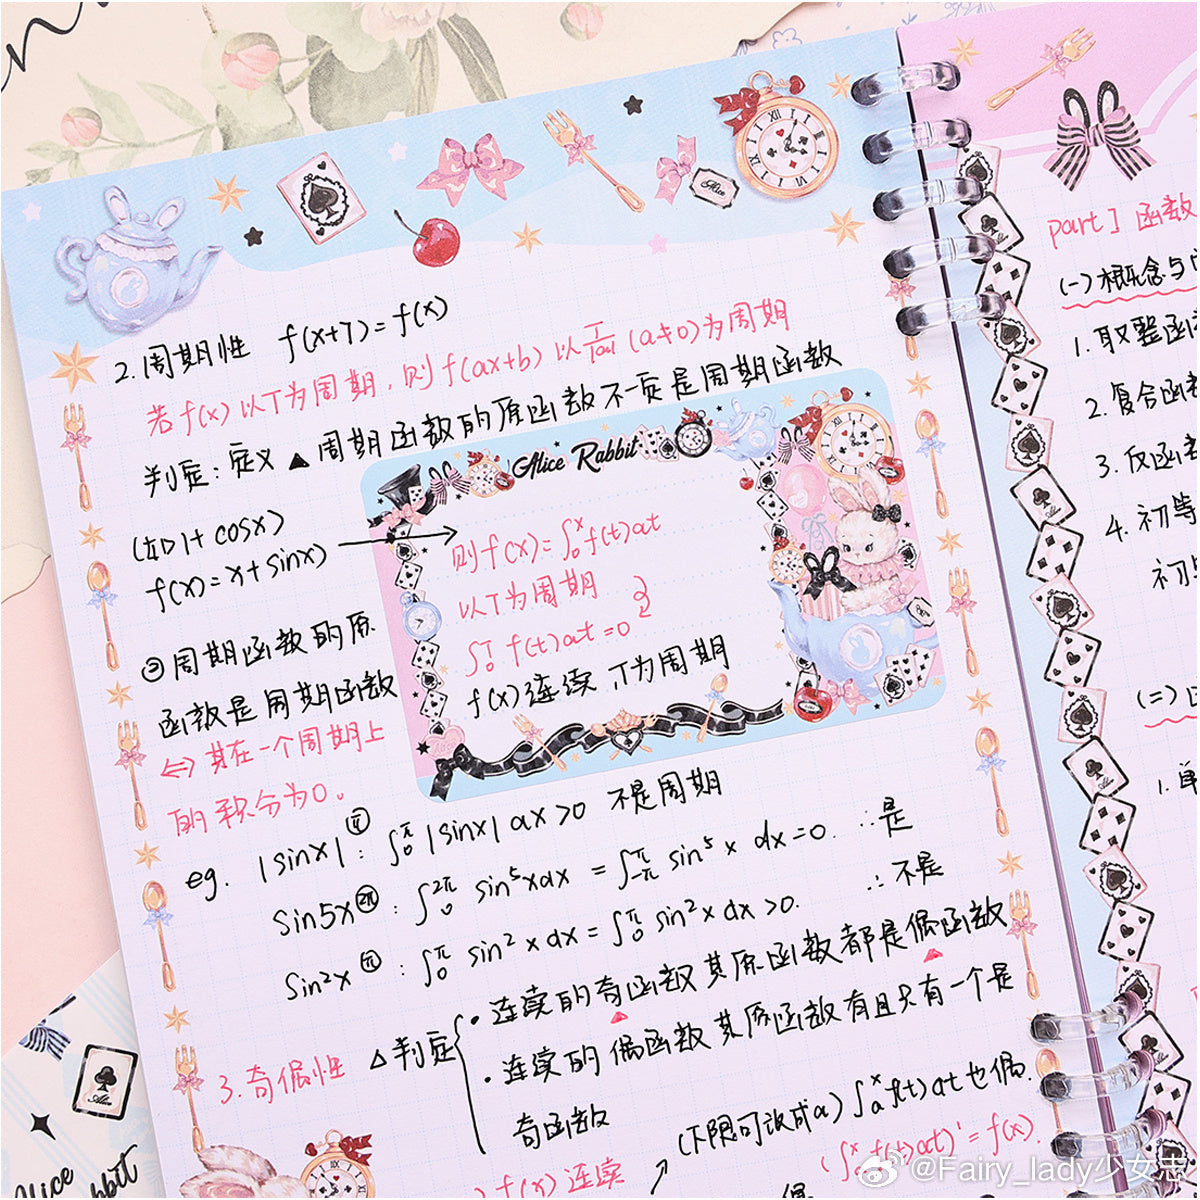 2.周期性 f(x+T)=f(x)
若f(x)以T为周期,则f(ax+b)以T/|a|(a≠0)为周期
判定:定义 ▲周期函数的原函数不一定是周期函数
(如1+cosx)
f(x)=x+sinx) →
②周期函数的原
函数是周期函数
⇔其在一个周期上
的积分为0。
Alice Rabbit
则f(x)=∫₀ˣf(t)dt
以T为周期
∫₀ᵀf(t)dt=0
f(x)连续 T为周期
eg. |sinx| π : ∫₀^π |sinx| dx>0 不是周期
sin5x 2π : ∫₀^2π sin⁵xdx = ∫₋π^π sin⁵x dx=0. ∴是
sin²x π : ∫₀^π sin²xdx=∫₀^π sin²xdx>0. ∴不是
3.奇偶性 △判定
·连续的奇函数其原函数都是偶函数
·连续的偶函数其原函数有且只有一个是
奇函数
(下限可改成a) ∫ₐˣf(t)dt也偶.
f(x)连续
f(t)dt)'=f(x).
part1 函数
(一)概念与
1.取整函
2.复合函
3.反函
4.初等
初
(二)
1.单
Alice
@Fairy_lady少女志